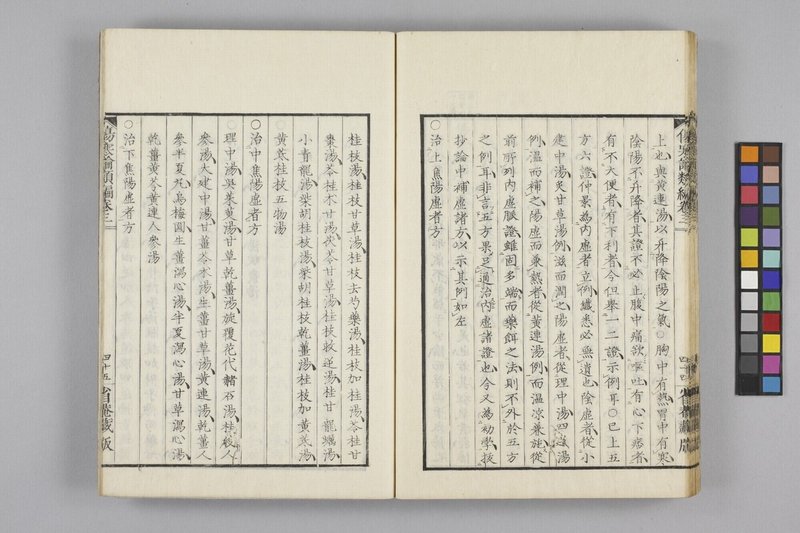 傷寒論類編卷三
上也與黃連湯以升降陰陽之氣○胸中有熱胃中有寒
陰陽不升降者其證不必止腹中痛欲嘔吐有心下痞者
有不大便者有下利者今但舉一二證示例耳○已上五
方六證仲景為內虛者立例纖悉必無遺也陰虛者從小
建中湯炙甘草湯例滋而潤之陽虛者從理中湯四逆湯
例溫而補之陽虛而兼熱者從黃連湯例而溫涼兼施從
前所列內虛脈證雖固多端而藥餌之法則不外於五方
之例耳非言五方果足適治內虛諸證也今又為初學拔
抄論中補虛諸方以示其例如左
○治上焦陽虛者方
四十四
桂枝湯桂枝甘草湯桂枝去芍藥湯桂枝加桂湯苓桂甘
棗湯苓桂朮甘湯茯苓甘草湯桂枝救逆湯桂甘龍蠣湯
小青龍湯柴胡桂枝湯柴胡桂枝乾薑湯桂枝加黃芪湯
黃芪桂枝五物湯
○治中焦陽虛者方
理中湯吳茱黃湯甘草乾薑湯旋覆花代赭石湯桂枝人
參湯大建中湯甘薑苓朮湯生薑甘草湯黃連湯乾薑人
參半夏丸烏梅圓生薑瀉心湯半夏瀉心湯甘草瀉心湯
乾薑黃芩黃連人參湯
○治下焦陽虛者方
傷寒論類編卷三
四十五